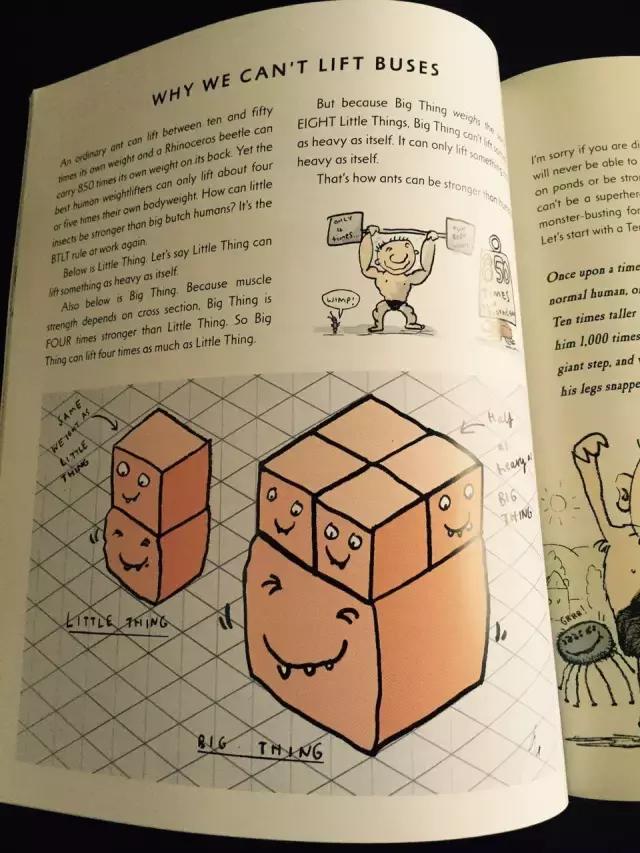 WHY WE CAN'T LIFT BUSES
An ordinary ant can lift between ten and fifty
times its own weight and a Rhinoceros beetle can
carry 850 times its own weight on its back. Yet the
best human weightlifters can only lift about four
or five times their own bodyweight. How can little
insects be stronger than big butch humans? It's the
BTLT rule at work again.
Below is Little Thing. Let's say Little Thing can
lift something as heavy as itself.
Also below is Big Thing. Because muscle
strength depends on cross section, Big Thing is
FOUR times stronger than Little Thing. So Big
Thing can lift four times as much as Little Thing.
But because Big Thing weighs the
EIGHT Little Things, Big Thing can't lift
as heavy as itself. It can only lift something
heavy as itself.
That's how ants can be stronger than
ONLY
4
TIMES...
WIMP!
850
TIMES
SAME
WEIGHT AS
LITTLE
THING
Half
as
heavy as
BIG
THING
LITTLE THING
BIG THING
I'm sorry if you are di
will never be able to
on ponds or be stro
can't be a superhe
monster-busting for
Let's start with a Te
Once upon a time
normal human, o
Ten times taller
him 1,000 times
giant step, and
his legs snappe
GRRR!